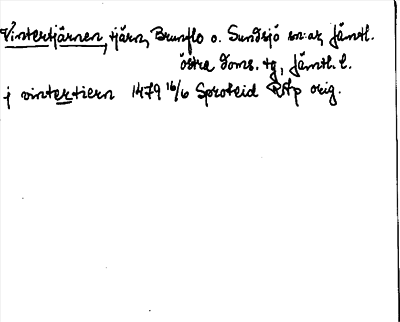 Vintertjärnen, tjärn, Brunflo o. Sundsjö sn:ar, Jämtl.
östra doms. tg, Jämtl. l.
j vintertiern 1479 16/6 Sproteid RAp orig.